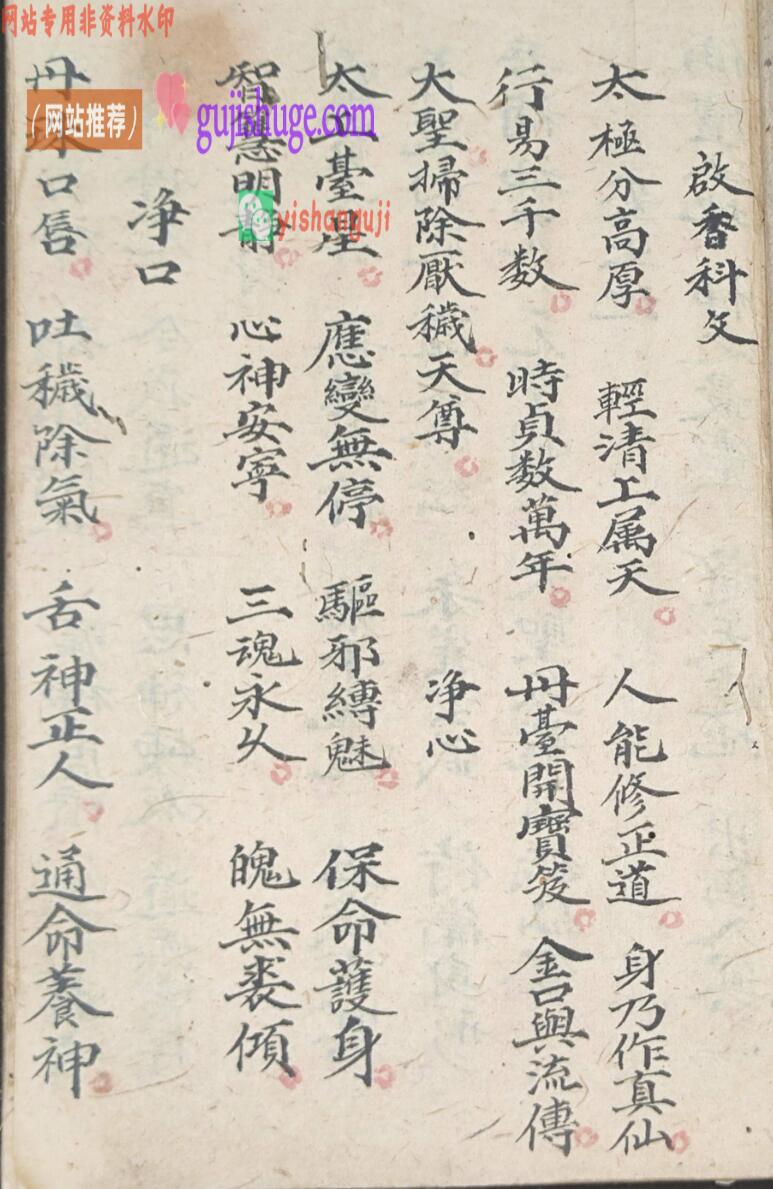 网站专用非资料水印
（网站推荐）
gujishuge.com
yishanguji
啟香科文
太極分高厚 輕清上属天 人能修正道 身乃作真仙
行易三千数 時貞数萬年 丹臺開寶笈 金口與流傳
大聖掃除厭穢天尊 净心
太上臺星 應變無停 驅邪縛魅 保命護身
智慧明 心神安寧 三魂永久 魄無裘傾
净口
丹 口唇 吐穢除氣 舌神正人 通命養神